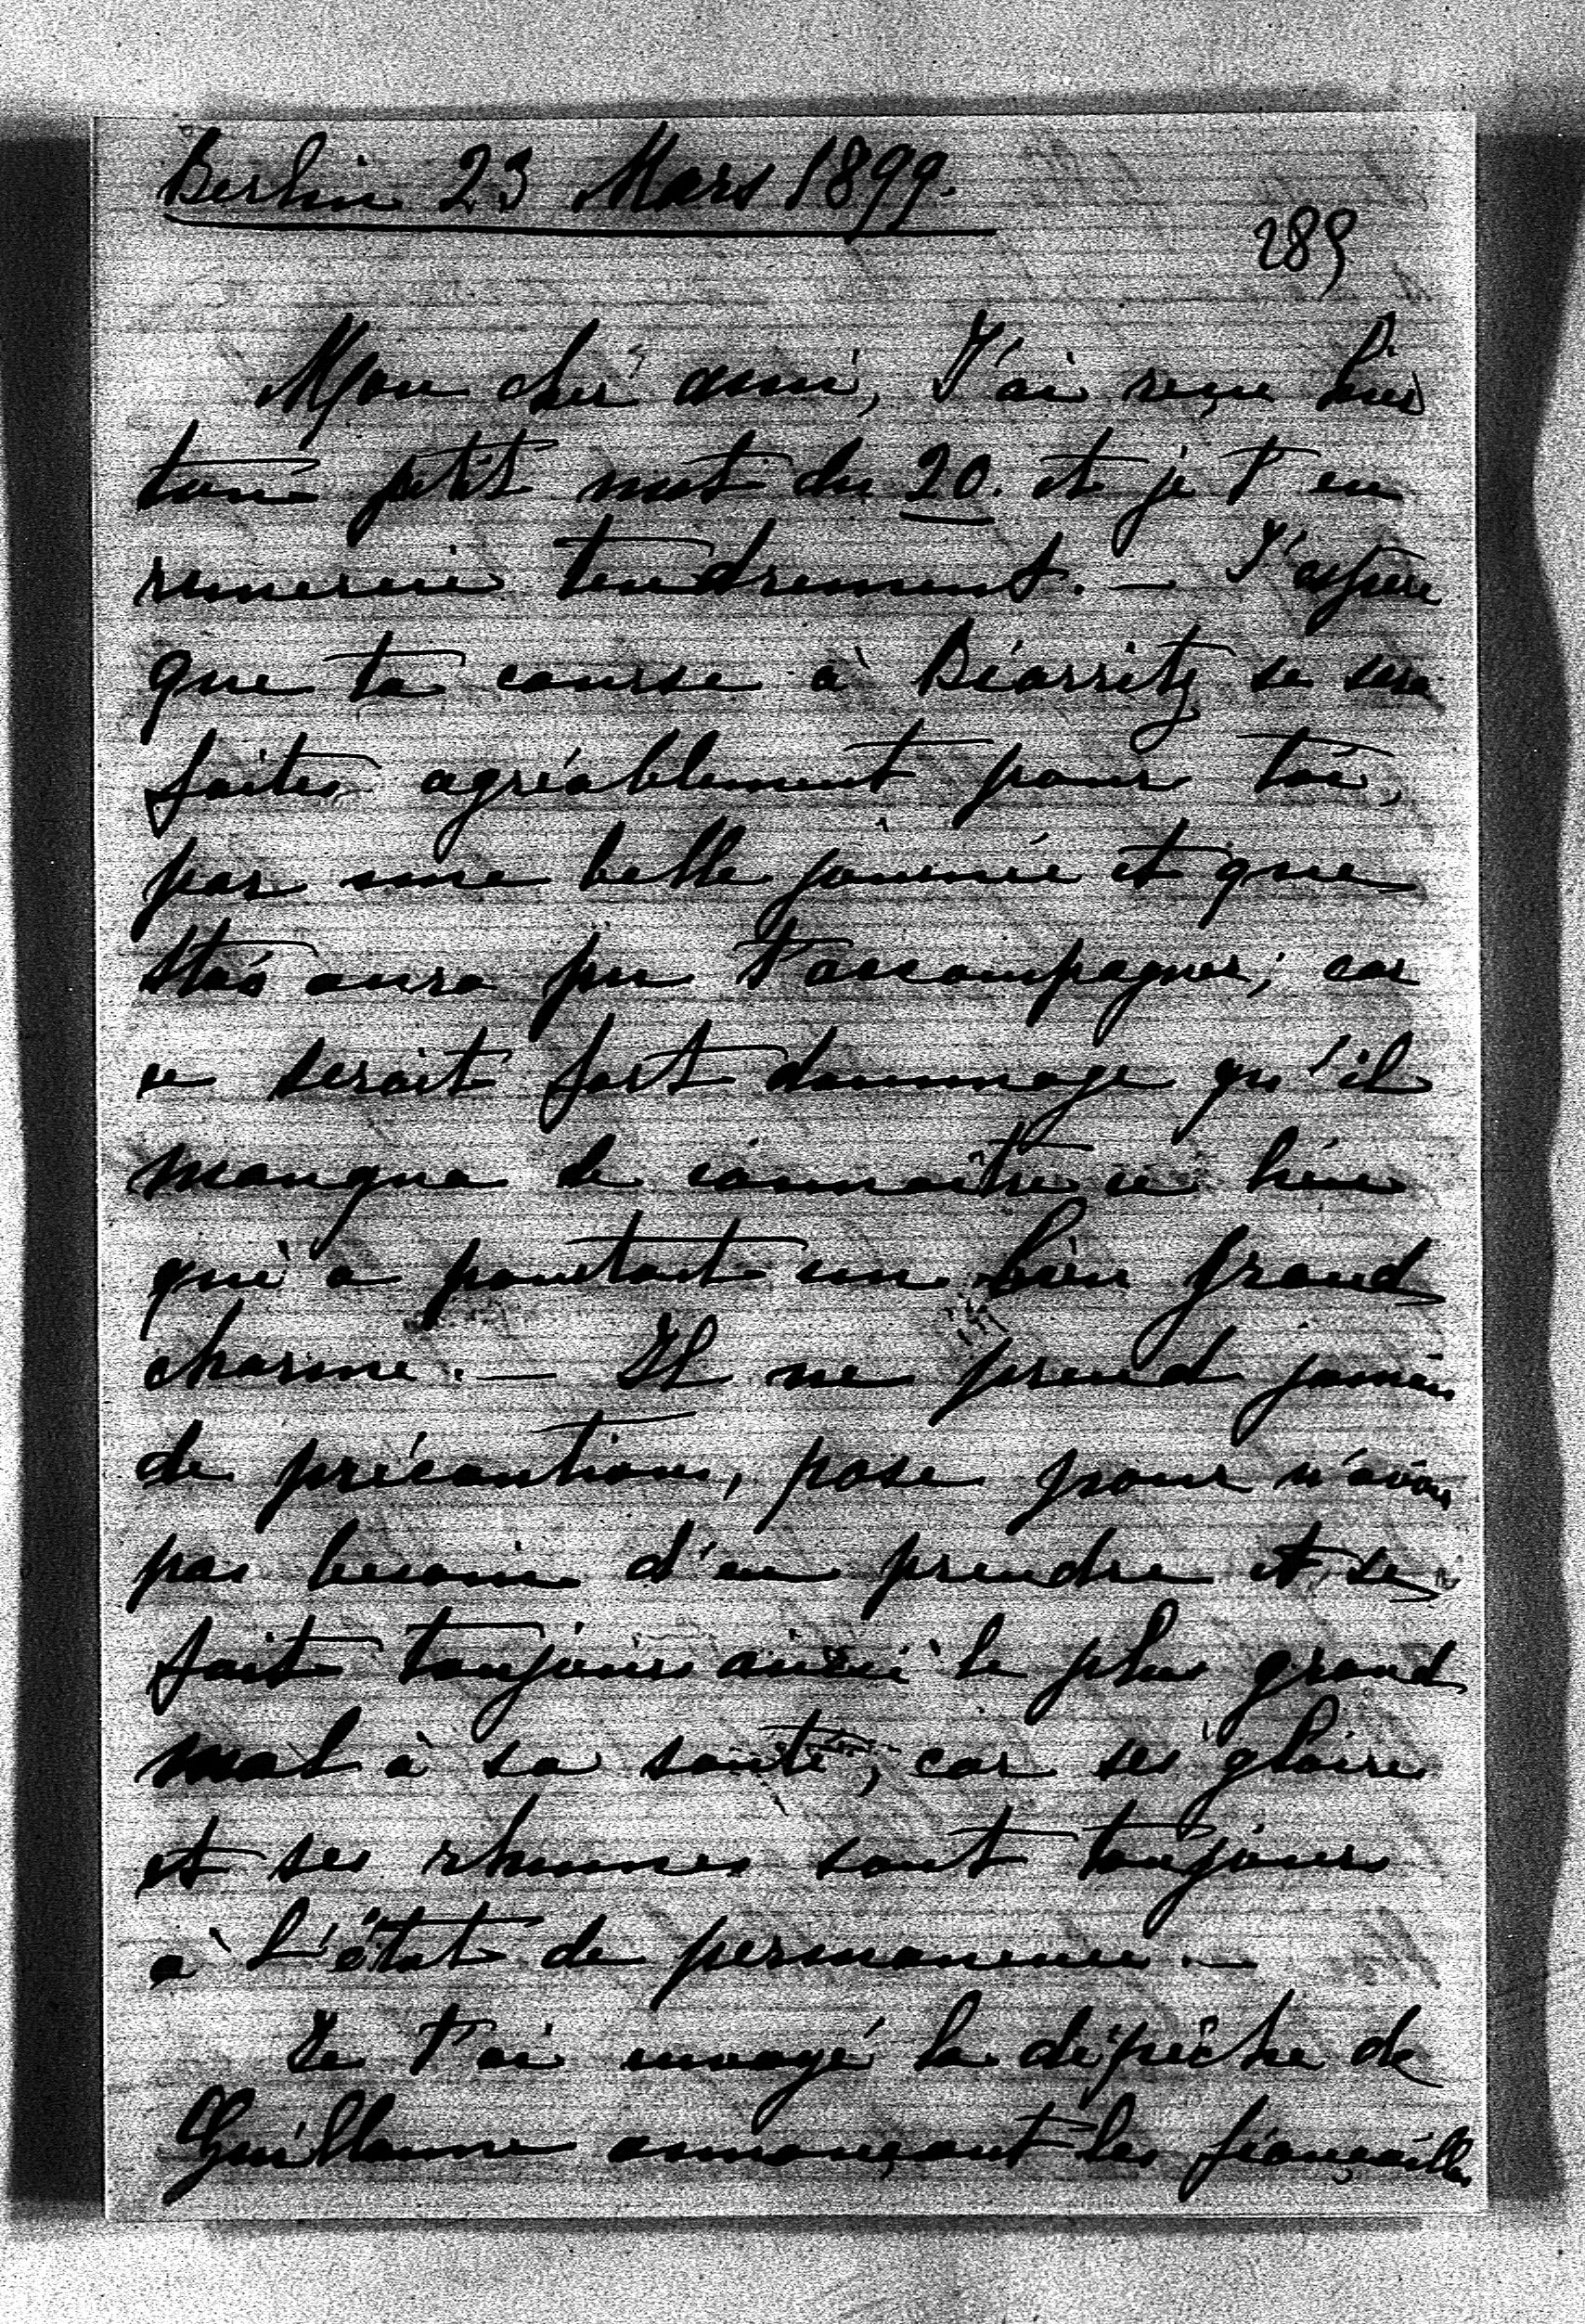 Berlin 23 Mars 1899.
289
Mon cher ami, J'ai reçu hier
ton petit mot du 20. et je t'en
remercie tendrement. — J'espère
que ta course à Biarritz se sera
faites agréablement pour toi,
par une belle journée et que
Stas aura pu t'accompagner; car
ce serait fort dommage qu'il
manqua de connaître ce lieu
qui a pourtant un bien grand
charme. — Il ne prend jamais
de précautions, pose pour n'avoir
pas besoin d'en prendre et se
fait toujours ainsi le plus grand
mal à sa santé, car ses glaires
et ses rhumes sont toujours
à l'état de permanence. —
Je t'ai envoyé la dépêche de
Guillaume annonçant les fiançailles